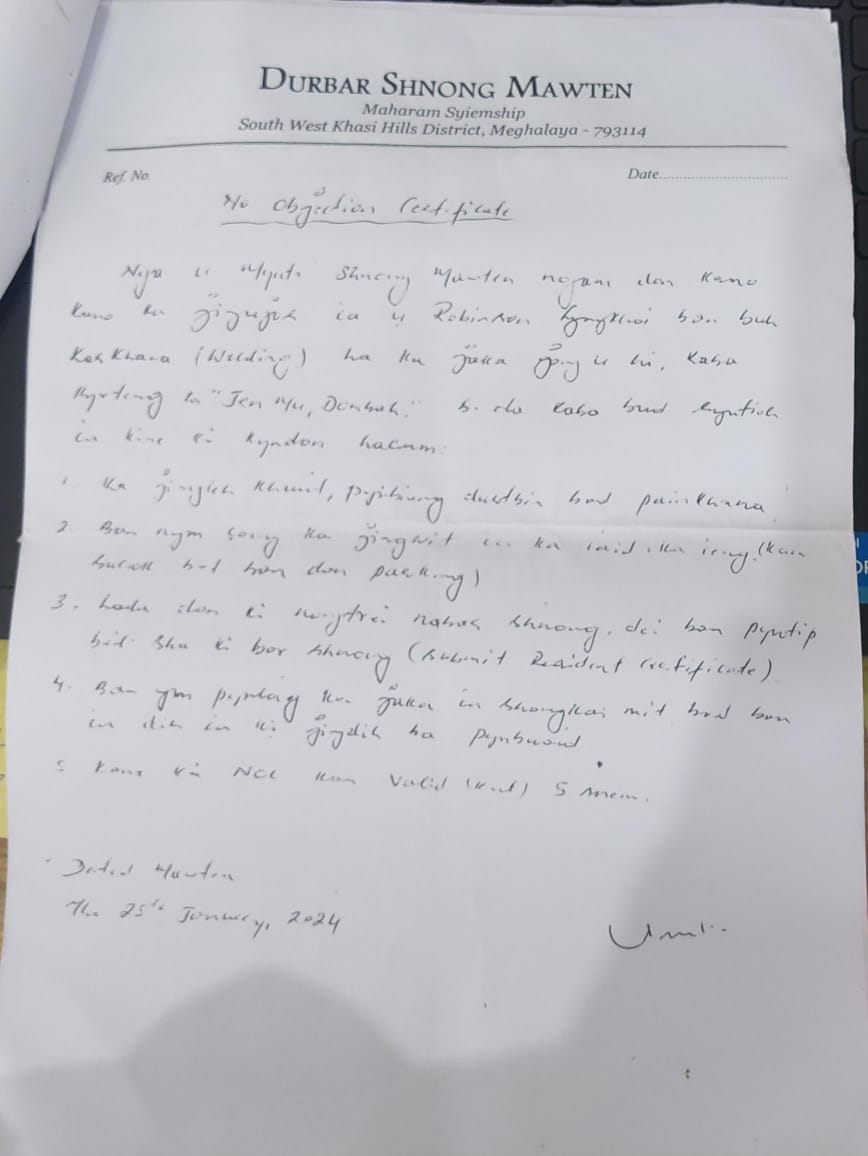 DURBAR SHNONG MAWTEN
Maharam Syiemship
South West Khasi Hills District, Meghalaya - 793114
Ref. No.
Date................................
No Objection Certificate
Nga u Myntri Shnong Mawten ngam don kano
kano ka jingujor ia u Robinson ban buh
Kar Khana (Welding) ha ka jaka jong u hi, kaba
kyrteng ka "Jen Mu, Dombah." kaba bud
ia kine ki kyndon harum:
1. Ka jingleh khuid, dustbin bad paikhana.
2. Ban nym ka jingwit ia ka iaid ka ieng (kam
bad ban don parking)
3. Lada don ki nongtrei nabar shnong, dei ban pyntip
sha ki bor shnong (submit Resident Certificate)
4. Ban ym ka jaka ia shongkai mit bad ban
ia dih ia ki jingdih ba pynbuaid
5 Kane ka NOC kam Valid 5 snem.
Dated Mawten
The 25th January, 2024